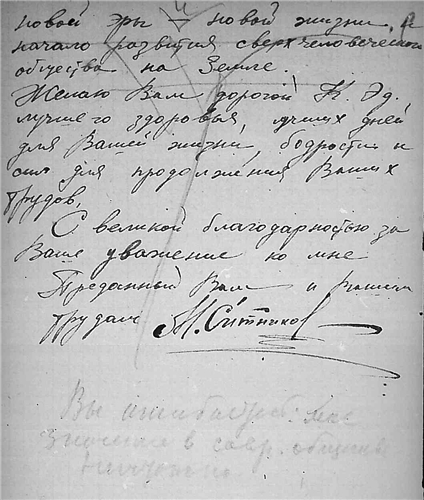 новой эры — новой жизни, и
начало развития сверхчеловеческого
общества на Земле.
Желаю Вам дорогой К. Эд.
лучшего здоровья, лучших дней
для Вашей жизни, бодрости и
сил для продолжения Ваших
трудов,
С великой благодарностью за
Ваше уважение ко мне
Преданный Вам и Вашим
трудам М. Ситников
Вы
в общине